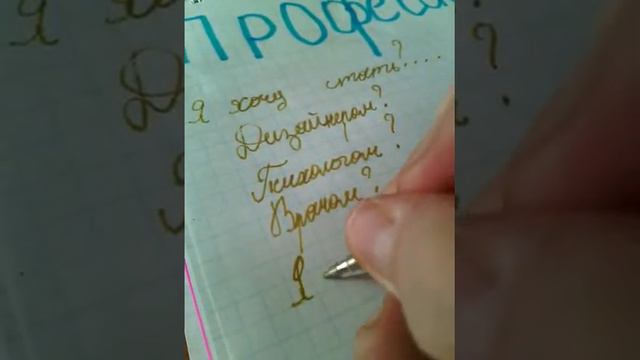 Профес
Я хочу стать?....
Дизайнером?
Психологом?
Врачом?
Я